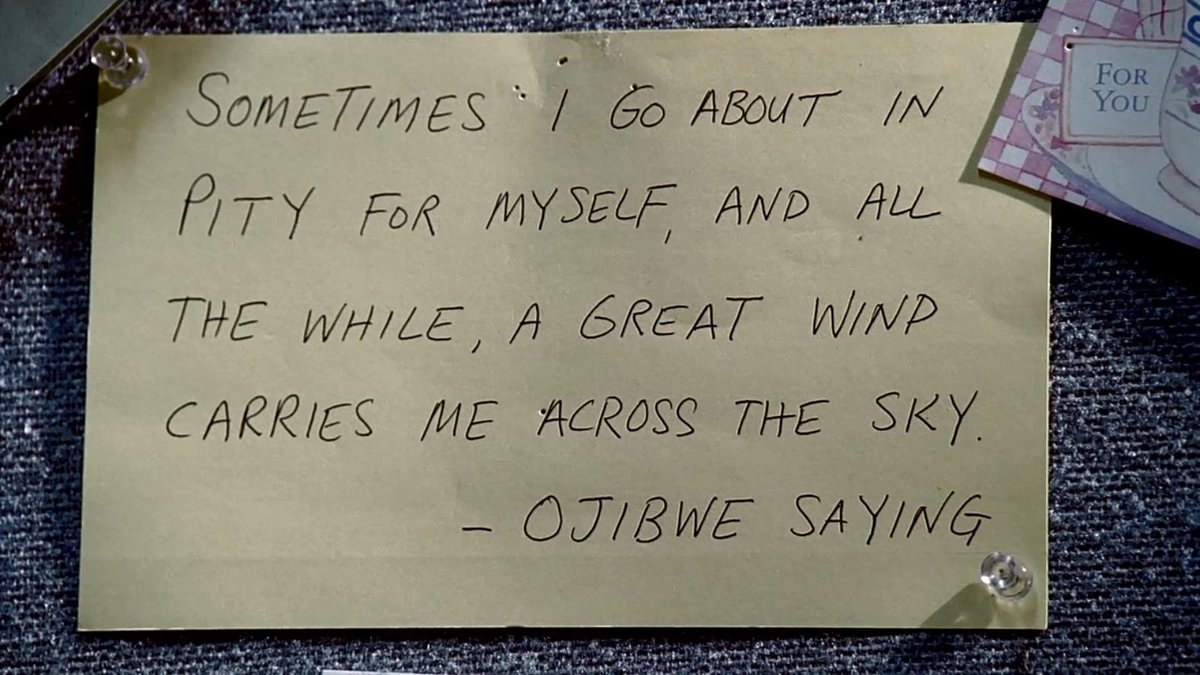 SOMETIMES I GO ABOUT IN
PITY FOR MYSELF, AND ALL
THE WHILE, A GREAT WIND
CARRIES ME ACROSS THE SKY.
- OJIBWE SAYING
FOR
YOU